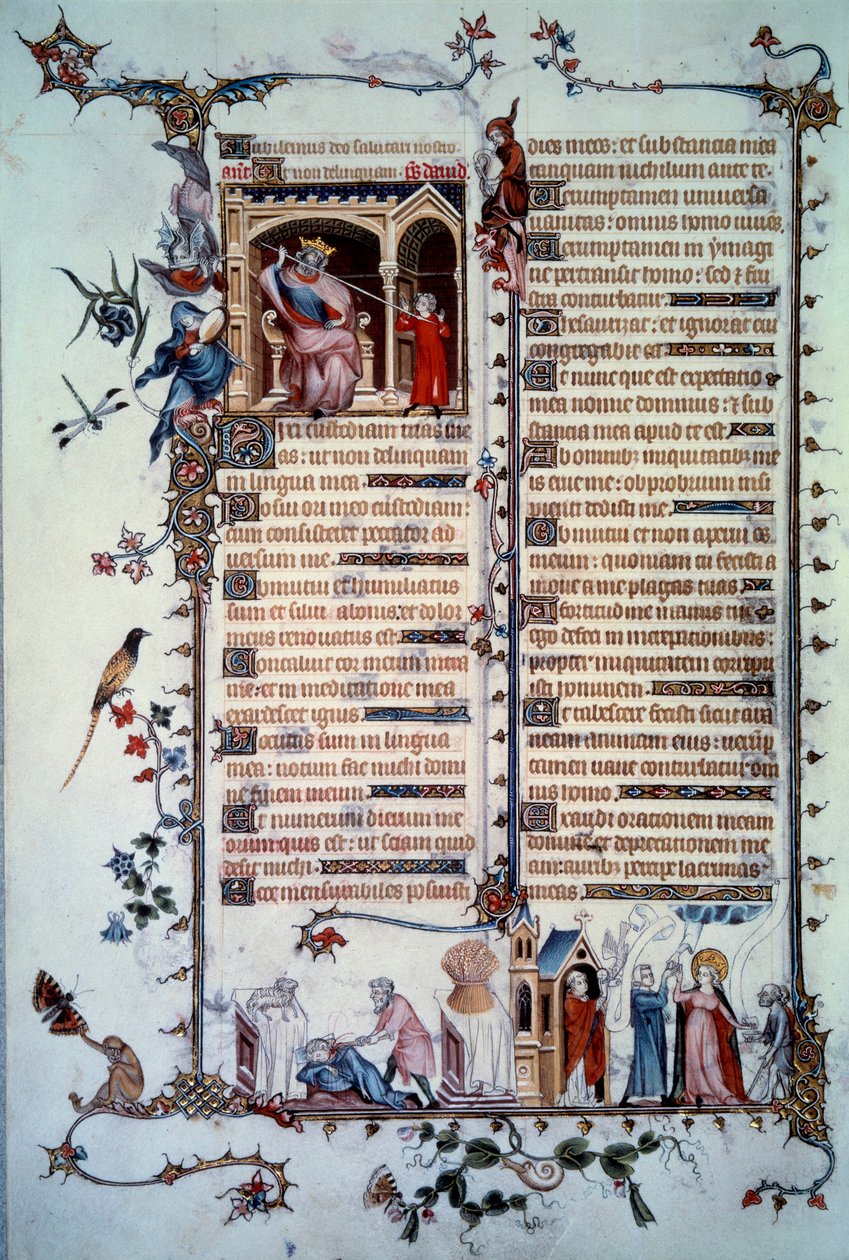 Iubilemus deo salutari nostro.
ant. Ut non delinquam. ps dauid.
Dixi custodiam uias me
as: ut non delinquam
in lingua mea.
Posui ori meo custodiam:
cum consisteret peccator ad
uersum me.
Obmutui et humiliatus
sum et silui abonis: et dolor
meus renouatus est.
Concaluit cor meum intra
me: et in meditatione mea
exardescet ignis.
Locutus sum in lingua
mea: notum fac michi domi
ne finem meum.
Et numerum dierum me
orum quis est: ut sciam quid
desit michi.
Ecce mensurabiles posuisti
dies meos: et substancia mea
tanquam nichilum ante te.
Uerumptamen uniuersa
uanitas: omnis homo uiuens.
Uerumptamen in ymagi
ne pertransit homo: sed et frus
tra conturbatur.
Thesaurizat: et ignorat cui
congregabit ea.
Et nunc que est expectatio
mea nonne dominus: et sub
stancia mea apud te est.
Ab omnibus iniquitatibus me
is erue me: obprobrium insi
pienti dedisti me.
Obmutui et non aperui os
meum: quoniam tu fecisti a
moue a me plagas tuas.
A fortitudine manus tue
ego defeci in increpationibus:
propter iniquitatem corripu
isti hominem.
Et tabescere fecisti sicut ara
neam animam eius: uerump
tamen uane conturbatur om
nis homo.
Exaudi orationem meam
domine et deprecationem me
am: auribus percipe lacrimas
meas.